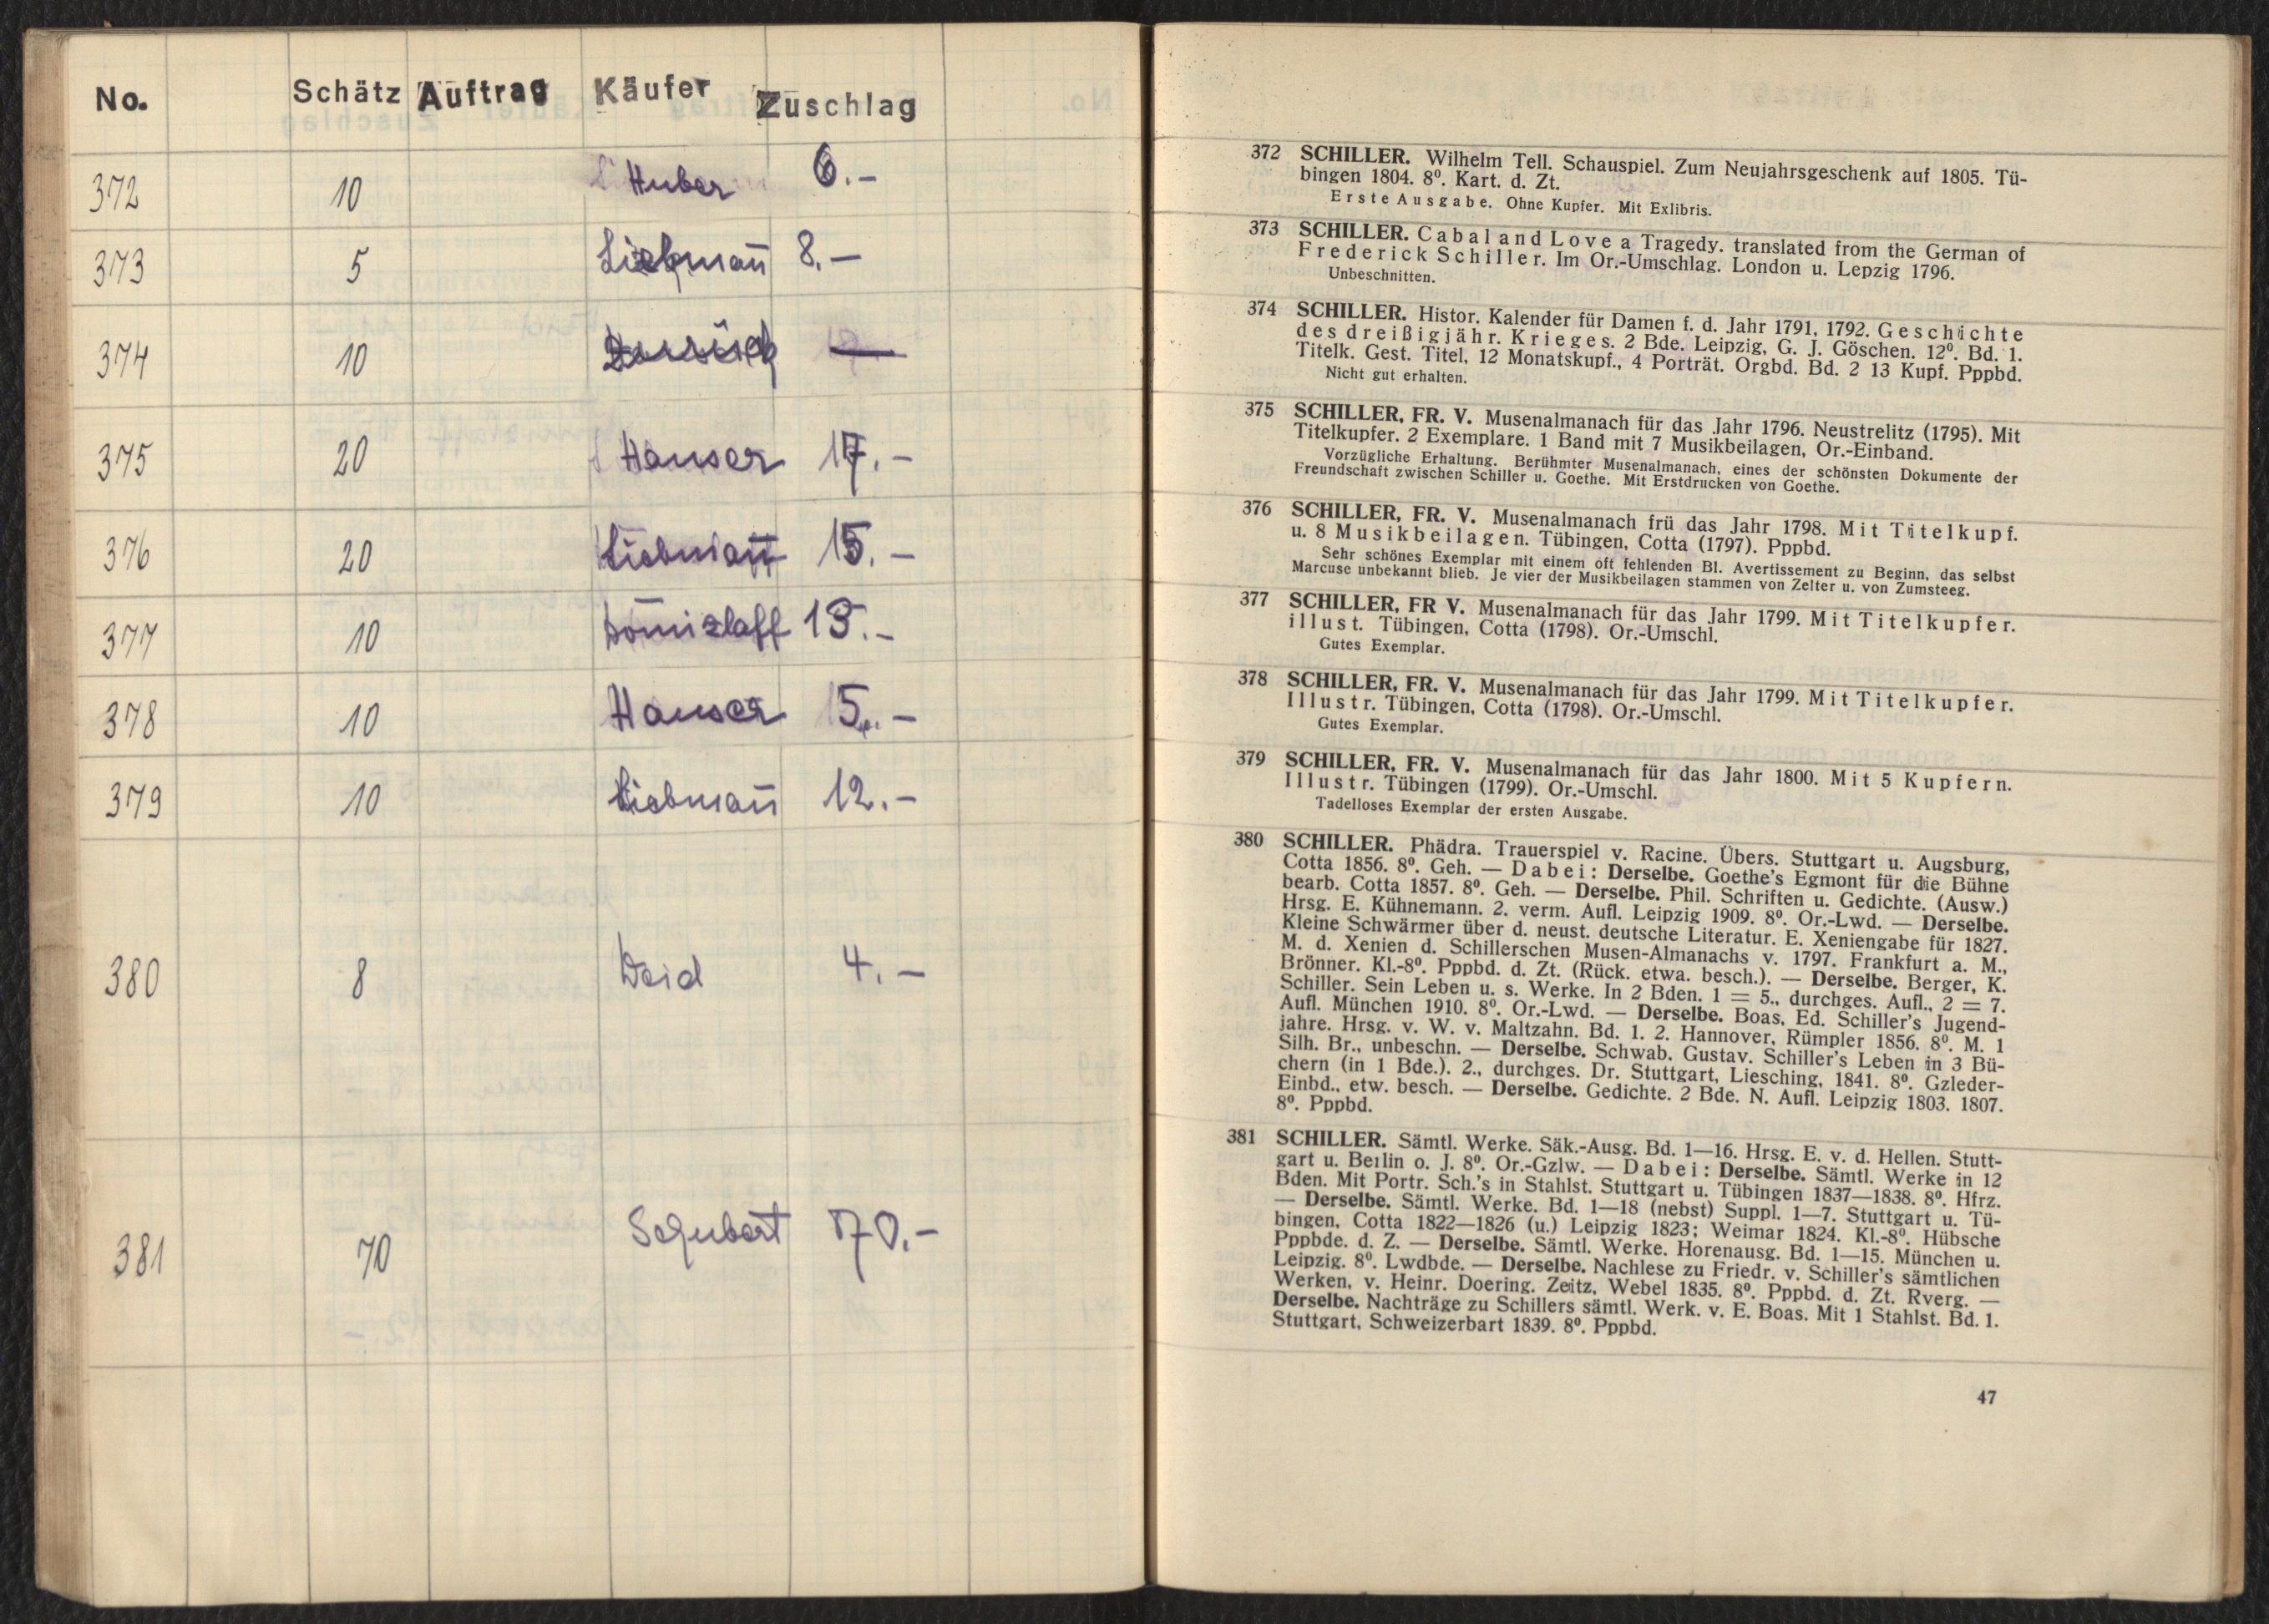 No. Schätz Auftrag Käufer Zuschlag
372 10 Huber 6.–
373 5 Liebmañ 8.–
374 10 Zurück —
375 20 Hauser 17.–
376 20 Liebmañ 15.–
377 10 Domizlaff 13.–
378 10 Hauser 5.–
379 10 Liebmañ 12.–
380 8 Weid 4.–
381 70 Schubert 70.–
372 SCHILLER. Wilhelm Tell. Schauspiel. Zum Neujahrsgeschenk auf 1805. Tü-
bingen 1804. 8⁰. Kart. d. Zt.
Erste Ausgabe. Ohne Kupfer. Mit Exlibris.
373 SCHILLER. Cabal and Love a Tragedy. translated from the German of
Frederick Schiller. Im Or.-Umschlag. London u. Lepzig 1796.
Unbeschnitten.
374 SCHILLER. Histor. Kalender für Damen f. d. Jahr 1791, 1792. Geschichte
des dreißigjähr. Krieges. 2 Bde. Leipzig, G. J. Göschen. 12⁰. Bd. 1.
Titelk. Gest. Titel, 12 Monatskupf., 4 Porträt. Orgbd. Bd. 2 13 Kupf. Pppbd.
Nicht gut erhalten.
375 SCHILLER, FR. V. Musenalmanach für das Jahr 1796. Neustrelitz (1795). Mit
Titelkupfer. 2 Exemplare. 1 Band mit 7 Musikbeilagen, Or.-Einband.
Vorzügliche Erhaltung. Berühmter Musenalmanach, eines der schönsten Dokumente der
Freundschaft zwischen Schiller u. Goethe. Mit Erstdrucken von Goethe.
376 SCHILLER, FR. V. Musenalmanach frü das Jahr 1798. Mit Titelkupf.
u. 8 Musikbeilagen. Tübingen, Cotta (1797). Pppbd.
Sehr schönes Exemplar mit einem oft fehlenden Bl. Avertissement zu Beginn, das selbst
Marcuse unbekannt blieb. Je vier der Musikbeilagen stammen von Zelter u. von Zumsteeg.
377 SCHILLER, FR V. Musenalmanach für das Jahr 1799. Mit Titelkupfer.
illust. Tübingen, Cotta (1798). Or.-Umschl.
Gutes Exemplar.
378 SCHILLER, FR. V. Musenalmanach für das Jahr 1799. Mit Titelkupfer.
Illustr. Tübingen, Cotta (1798). Or.-Umschl.
Gutes Exemplar.
379 SCHILLER, FR. V. Musenalmanach für das Jahr 1800. Mit 5 Kupfern.
Illustr. Tübingen (1799). Or.-Umschl.
Tadelloses Exemplar der ersten Ausgabe.
380 SCHILLER. Phädra. Trauerspiel v. Racine. Übers. Stuttgart u. Augsburg,
Cotta 1856. 8⁰. Geh. — Dabei: Derselbe. Goethe's Egmont für die Bühne
bearb. Cotta 1857. 8⁰. Geh. — Derselbe. Phil. Schriften u. Gedichte. (Ausw.)
Hrsg. E. Kühnemann. 2. verm. Aufl. Leipzig 1909. 8⁰. Or.-Lwd. — Derselbe.
Kleine Schwärmer über d. neust. deutsche Literatur. E. Xeniengabe für 1827.
M. d. Xenien d. Schillerschen Musen-Almanachs v. 1797. Frankfurt a. M.,
Brönner. Kl.-8⁰. Pppbd. d. Zt. (Rück. etwa. besch.). — Derselbe. Berger, K.
Schiller. Sein Leben u. s. Werke. In 2 Bden. 1 = 5., durchges. Aufl., 2 = 7.
Aufl. München 1910. 8⁰. Or.-Lwd. — Derselbe. Boas, Ed. Schiller's Jugend-
jahre. Hrsg. v. W. v. Maltzahn. Bd. 1. 2. Hannover, Rümpler 1856. 8⁰. M. 1
Silh. Br., unbeschn. — Derselbe. Schwab, Gustav. Schiller's Leben in 3 Bü-
chern (in 1 Bde.). 2., durchges. Dr. Stuttgart, Liesching, 1841. 8⁰. Gzleder-
Einbd., etw. besch. — Derselbe. Gedichte. 2 Bde. N. Aufl. Leipzig 1803. 1807.
8⁰. Pppbd.
381 SCHILLER. Sämtl. Werke. Säk.-Ausg. Bd. 1—16. Hrsg. E. v. d. Hellen. Stutt-
gart u. Berlin o. J. 8⁰. Or.-Gzlw. — Dabei: Derselbe. Sämtl. Werke in 12
Bden. Mit Portr. Sch.'s in Stahlst. Stuttgart u. Tübingen 1837—1838. 8⁰. Hfrz.
— Derselbe. Sämtl. Werke. Bd. 1—18 (nebst) Suppl. 1—7. Stuttgart u. Tü-
bingen, Cotta 1822—1826 (u.) Leipzig 1823; Weimar 1824. Kl.-8⁰. Hübsche
Pppbde. d. Z. — Derselbe. Sämtl. Werke. Horenausg. Bd. 1—15. München u.
Leipzig. 8⁰. Lwdbde. — Derselbe. Nachlese zu Friedr. v. Schiller's sämtlichen
Werken, v. Heinr. Doering. Zeitz, Webel 1835. 8⁰. Pppbd. d. Zt. Rverg. —
Derselbe. Nachträge zu Schillers sämtl. Werk. v. E. Boas. Mit 1 Stahlst. Bd. 1.
Stuttgart, Schweizerbart 1839. 8⁰. Pppbd.
47